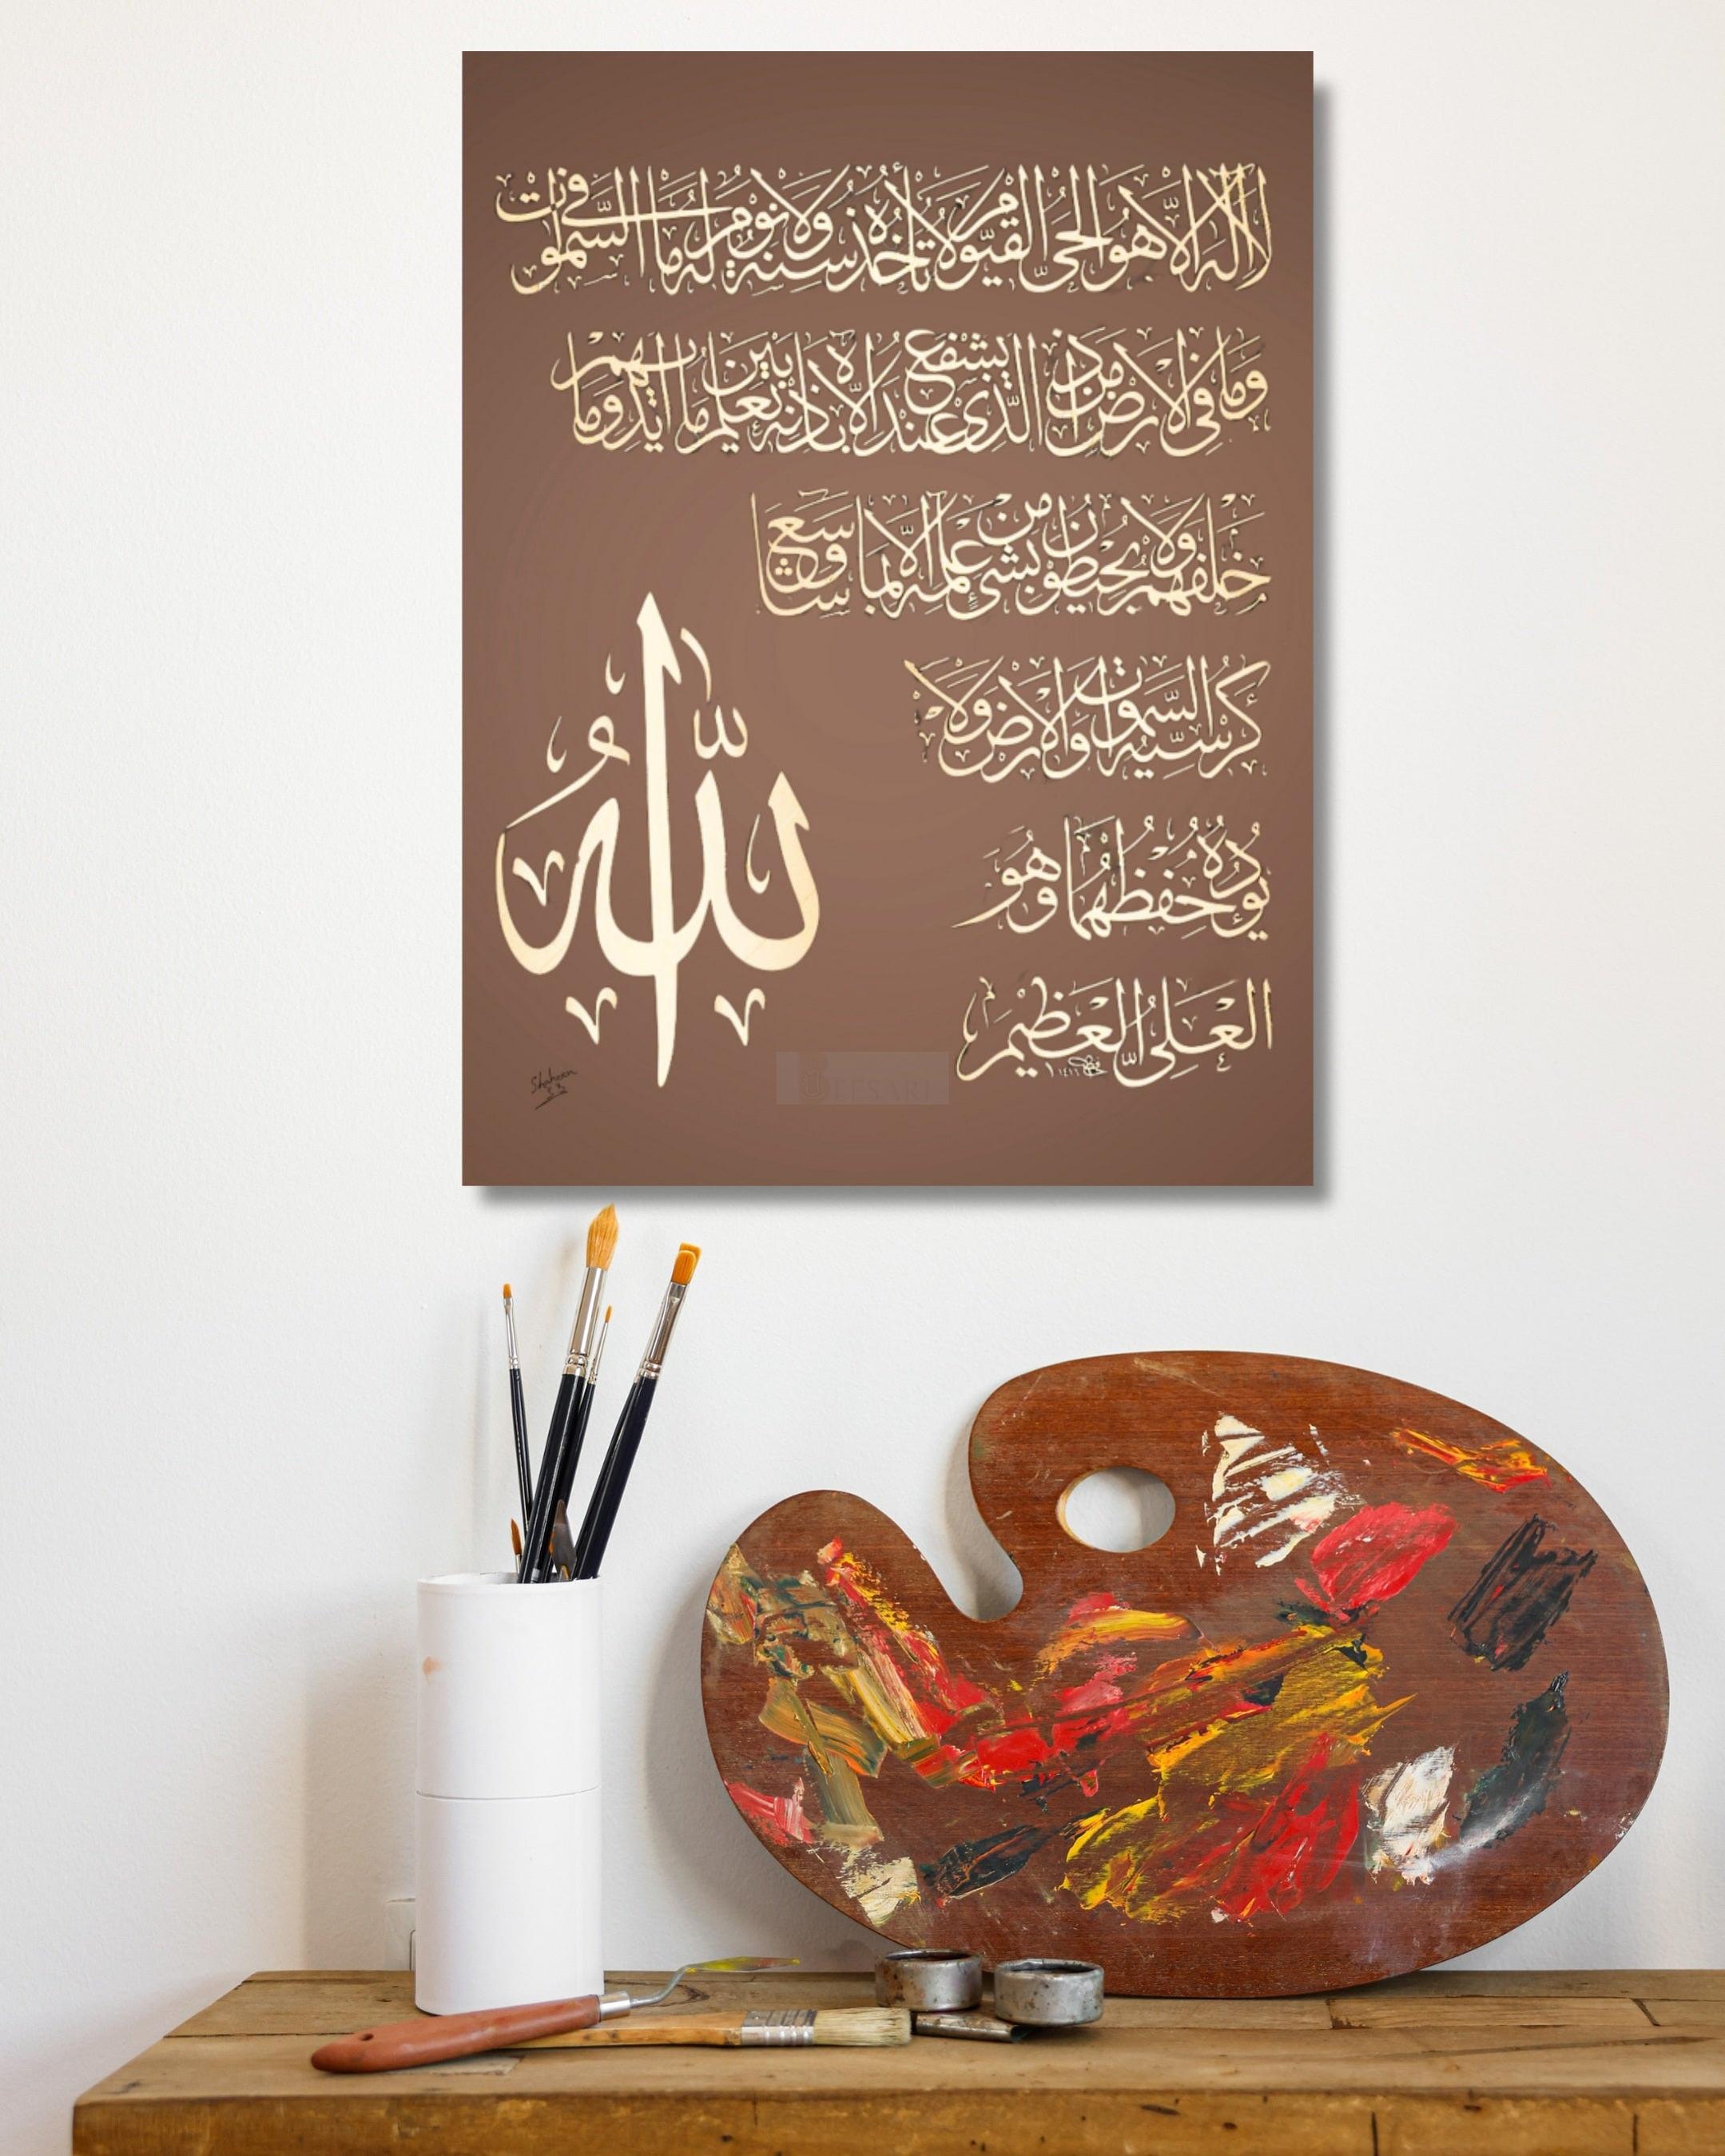 لا اله الا هو الحي القيوم لا تأخذه سنة ولا نوم له ما في السموات
وما في الارض من ذا الذي يشفع عنده الا باذنه يعلم ما بين ايديهم وما
خلفهم ولا يحيطون بشيء من علمه الا بما شاء وسع
كرسيه السموات والارض ولا
يؤده حفظهما وهو
العلي العظيم
الله
Shaheen